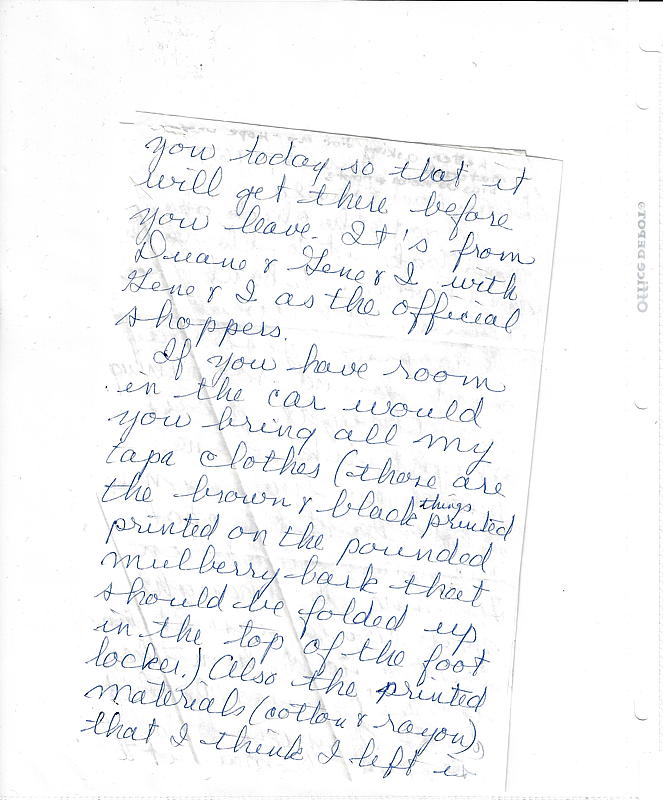 you today so that it
will get there before
you leave. It's from
Duane & Gene & I with
Gene & I as the official
shoppers.
If you have room
in the car would
you bring all my
tapa clothes (these are
the brown & black things printed
printed on the pounded
mulberry bark that
should be folded up
in the top of the foot
locker.) Also the printed
materials (cotton & rayon)
that I think I left i
Office DEPOT